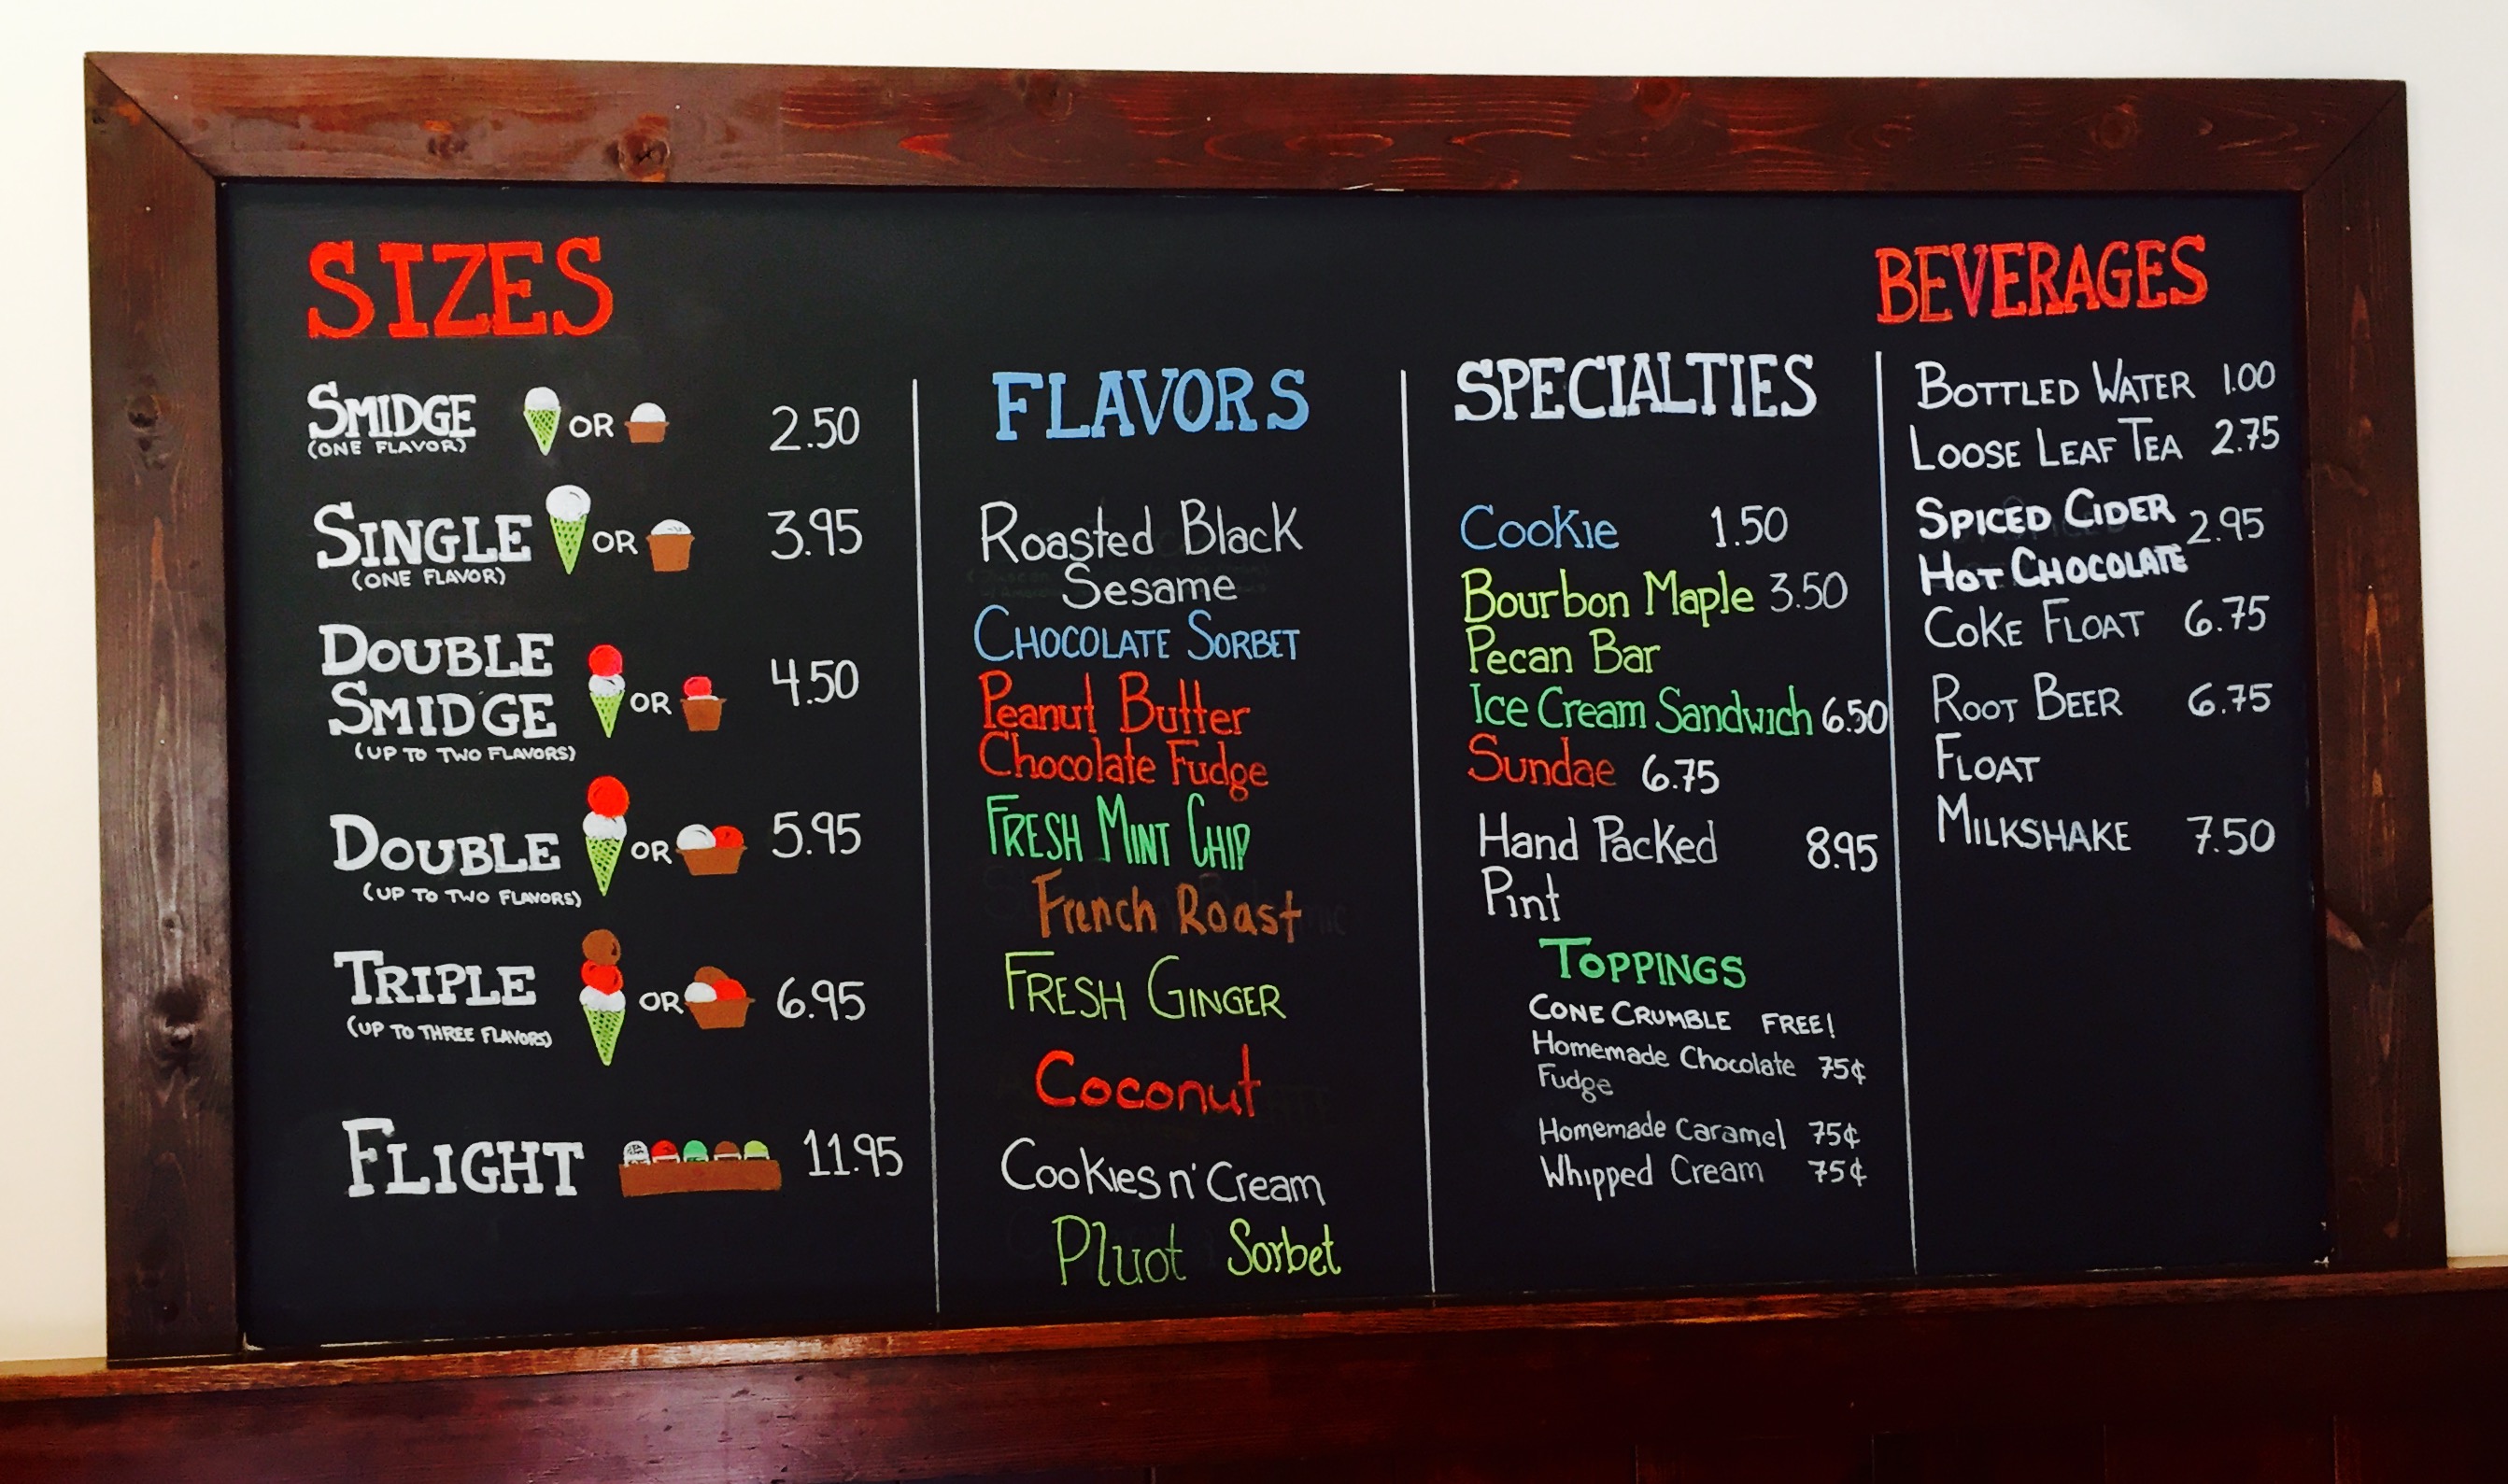 SIZES
SMIDGE OR 2.50
(ONE FLAVOR)
SINGLE OR 3.95
(ONE FLAVOR)
DOUBLE
SMIDGE OR 4.50
(UP TO TWO FLAVORS)
DOUBLE OR 5.95
(UP TO TWO FLAVORS)
TRIPLE OR 6.95
(UP TO THREE FLAVORS)
FLIGHT 11.95
FLAVORS
Roasted Black
Sesame
CHOCOLATE SORBET
Peanut Butter
Chocolate Fudge
FRESH MINT CHIP
French Roast
FRESH GINGER
Coconut
Cookies n' Cream
Pluot Sorbet
SPECIALTIES
Cookie 1.50
Bourbon Maple 3.50
Pecan Bar
Ice Cream Sandwich 6.50
Sundae 6.75
Hand Packed 8.95
Pint
TOPPINGS
CONE CRUMBLE FREE!
Homemade Chocolate 75¢
Fudge
Homemade Caramel 75¢
Whipped Cream 75¢
BEVERAGES
BOTTLED WATER 1.00
LOOSE LEAF TEA 2.75
SPICED CIDER 2.95
HOT CHOCOLATE
COKE FLOAT 6.75
ROOT BEER 6.75
FLOAT
MILKSHAKE 7.50